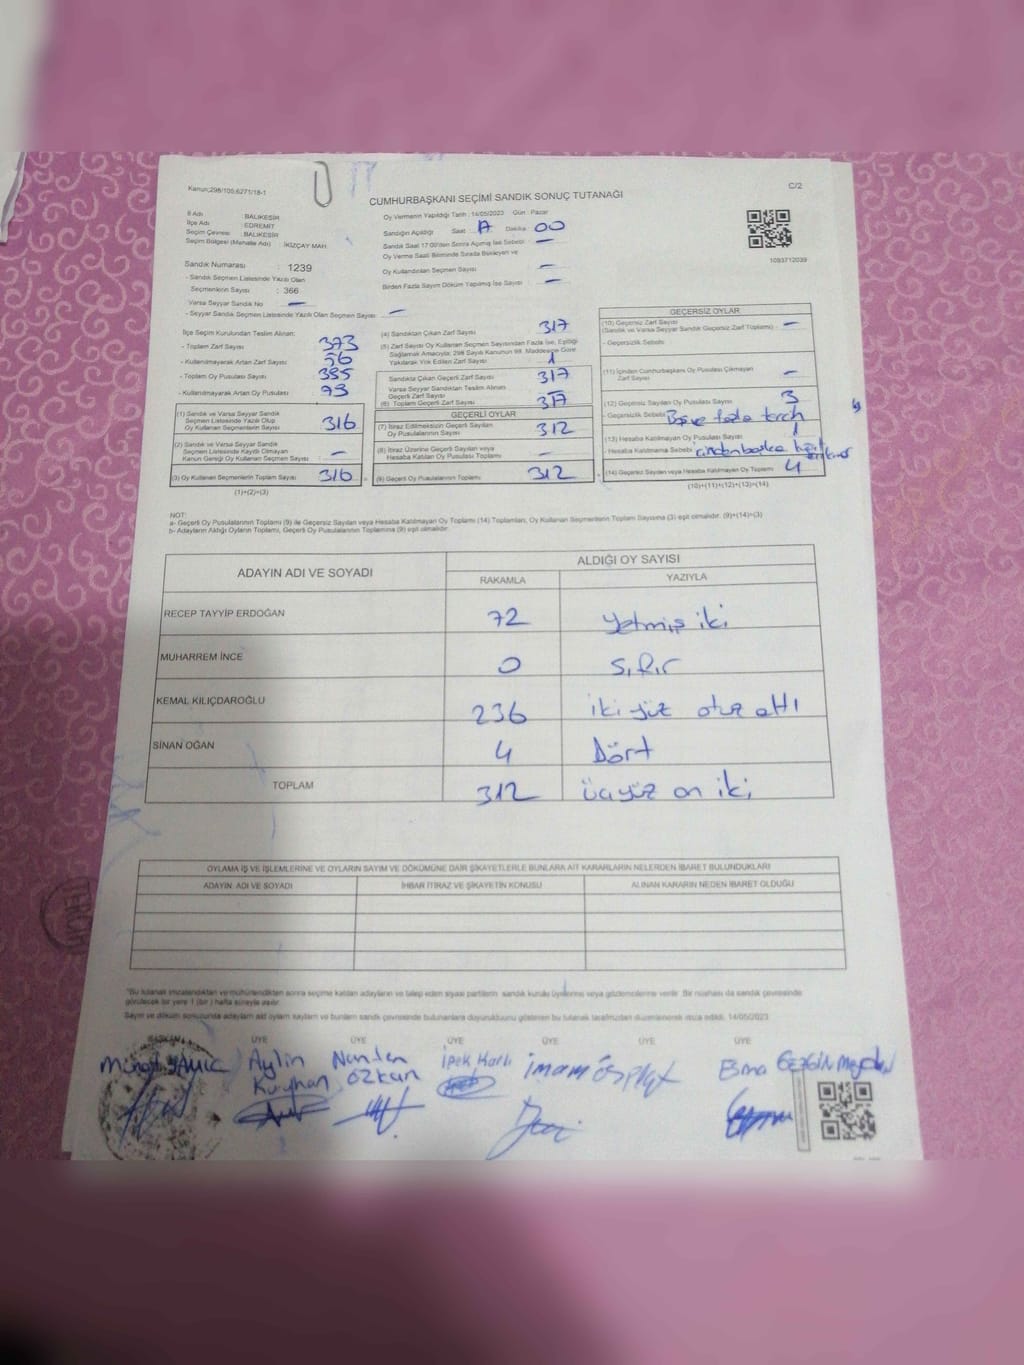 Kanun;298/100,6271/18-1
C/2
CUMHURBAŞKANI SEÇİMİ SANDIK SONUÇ TUTANAĞI
İl Adı BALIKESİR
İlçe Adı EDREMİT
Seçim Çevresi BALIKESİR
Seçim Bölgesi (Mahalle Adı) İKİZÇAY MAH.
Sandık Numarası : 1239
- Sandık Seçmen Listesinde Yazılı Olan
Seçmenlerin Sayısı : 366
Varsa Seyyar Sandık No —
- Seyyar Sandık Seçmen Listesinde Yazılı Olan Seçmen Sayısı: —
Oy Vermenin Yapıldığı Tarih : 14/05/2023 Gün : Pazar
Sandığın Açıldığı Saat Dakika 00
Sandık Saat 17:00'den Sonra Açılmış İse Sebebi —
Oy Verme Saati Bitiminde Sırada Bekleyen ve
Oy Kullandırılan Seçmen Sayısı —
Birden Fazla Sayım Döküm Yapılmış İse Sayısı —
1093712039
İlçe Seçim Kurulundan Teslim Alınan:
- Toplam Zarf Sayısı 373
- Kullanılmayarak Artan Zarf Sayısı 56
- Toplam Oy Pusulası Sayısı
- Kullanılmayarak Artan Oy Pusulası 73
(1) Sandık ve Varsa Seyyar Sandık
Seçmen Listesinde Yazılı Olup
Oy Kullanan Seçmenlerin Sayısı 316
(2) Sandık ve Varsa Seyyar Sandık
Seçmen Listesinde Kaydı Olmayan
Kanun Gereği Oy Kullanan Seçmen Sayısı —
(3) Oy Kullanan Seçmenlerin Toplam Sayısı 316
(1)+(2)=(3)
(4) Sandıktan Çıkan Zarf Sayısı 317
(5) Zarf Sayısı Oy Kullanan Seçmen Sayısından Fazla İse, Eşitliği
Sağlamak Amacıyla; 298 Sayılı Kanunun 98. Maddesine Göre
Yakılarak Yok Edilen Zarf Sayısı 1
Sandıkta Çıkan Geçerli Zarf Sayısı 317
Varsa Seyyar Sandıktan Teslim Alınan
Geçerli Zarf Sayısı
(6) Toplam Geçerli Zarf Sayısı 317
GEÇERLİ OYLAR
(7) İtiraz Edilmeksizin Geçerli Sayılan
Oy Pusulalarının Sayısı 312
(8) İtiraz Üzerine Geçerli Sayılan veya
Hesaba Katılan Oy Pusulası Toplamı —
(9) Geçerli Oy Pusulalarının Toplamı 312
GEÇERSİZ OYLAR
(10) Geçersiz Zarf Sayısı
(Sandık ve Varsa Seyyar Sandık Geçersiz Zarf Toplamı) —
- Geçersizlik Sebebi
(11) İçinden Cumhurbaşkanı Oy Pusulası Çıkmayan
Zarf Sayısı —
(12) Geçersiz Sayılan Oy Pusulası Sayısı 3
- Geçersizlik Sebebi fazla tercih
(13) Hesaba Katılmayan Oy Pusulası Sayısı 1
- Hesaba Katılmama Sebebi
(14) Geçersiz Sayılan veya Hesaba Katılmayan Oy Toplamı 4
(10)+(11)+(12)+(13)=(14)
NOT:
a- Geçerli Oy Pusulalarının Toplamı (9) ile Geçersiz Sayılan veya Hesaba Katılmayan Oy Toplamı (14) Toplamları, Oy Kullanan Seçmenlerin Toplam Sayısına (3) eşit olmalıdır. (9)+(14)=(3)
b- Adayların Aldığı Oyların Toplamı, Geçerli Oy Pusulalarının Toplamına (9) eşit olmalıdır.
ADAYIN ADI VE SOYADI
ALDIĞI OY SAYISI
RAKAMLA YAZIYLA
RECEP TAYYİP ERDOĞAN 72 yetmiş iki
MUHARREM İNCE 0 sıfır
KEMAL KILIÇDAROĞLU 236 iki yüz otuz altı
SİNAN OĞAN 4 Dört
TOPLAM 312 üçyüz on iki
OYLAMA İŞ VE İŞLEMLERİNE VE OYLARIN SAYIM VE DÖKÜMÜNE DAİR ŞİKAYETLERLE BUNLARA AİT KARARLARIN NELERDEN İBARET BULUNDUKLARI
ADAYIN ADI VE SOYADI İHBAR İTİRAZ VE ŞİKAYETİN KONUSU ALINAN KARARIN NEDEN İBARET OLDUĞU
"Bu tutanak imzalandıktan ve mühürlendikten sonra seçime katılan adayların ve talep eden siyasi partilerin sandık kurulu üyelerine veya gözlemcilerine verilir. Bir nüshası da sandık çevresinde
görülecek bir yere 1 (bir) hafta süreyle asılır.
Sayım ve döküm sonucunda adayların aldığı oyların sayılarını ve bunların sandık çevresinde bulunanlara duyurulduğunu gösteren bu tutanak tarafımızdan düzenlenerek imza edildi. 14/05/2023
BAŞKAN ÜYE ÜYE ÜYE ÜYE ÜYE ÜYE
Aylin Nurten İpek imam Esma
ÖZKAN
TERCİH